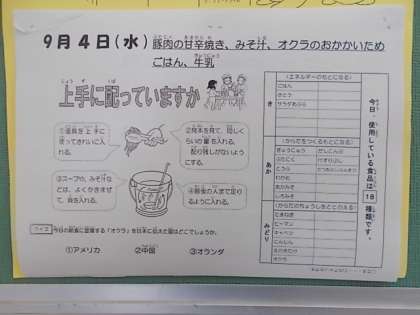 9月4日(水) 豚肉の甘辛焼き、みそ汁、オクラのおかかいため
ごはん、牛乳
上手に配っていますか
①食具を上手に
使ってきれいに入
れる。
②見本を見て、同じく
らいの量を入れる。
配り残しがないよう
にする。
③スープの、みそ汁な
どは、よくかきまぜ
て、具を入れる。
④最後の人まで足り
るように入れる。
クイズ 今日の給食に登場する「オクラ」を日本に伝えた国はどこでしょうか。
①アメリカ ②中国 ③オランダ
今日、使用している食品は18種類です。
き
(エネルギーのもとになる)
ごはん
さとう
サラダあぶら
あか
(からだをつくるもとになる)
ぎゅうにゅう
ぶたにく
とうふ
わかめ
あかみそ
しろみそ
みどり
(からだのちょうしをととのえる)
たまねぎ
ピーマン
キャベツ
にんじん
オクラ